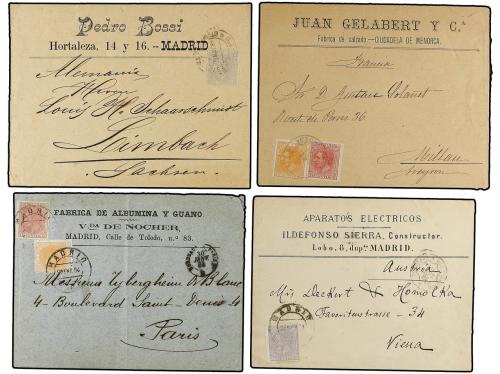 Pedro Bossi
Hortaleza, 14 y 16.-MADRID
Alemania
Herrn
Louis H. Schaarschmidt
Leimbach
Sachsen.
JUAN GELABERT Y C.ª
Fabrica de calzado-CIUDADELA DE MENORCA.
Francia
Sr D. Gustave Volanet
36
Millau
Aveyron
FABRICA DE ALBUMINA Y GUANO.
V.DA DE NOCHER,
MADRID, Calle de Toledo, n.º 83.
MADRID
MADRID
Messieurs
4 - Boulevard Saint-Denis - 4
Paris
APARATOS ELECTRICOS
ILDEFONSO SIERRA, Constructor.
Lobo, 8, dup.do MADRID.
Austria
Deckert & Homolka
Favoritenstrasse - 34
MADRID
Viena